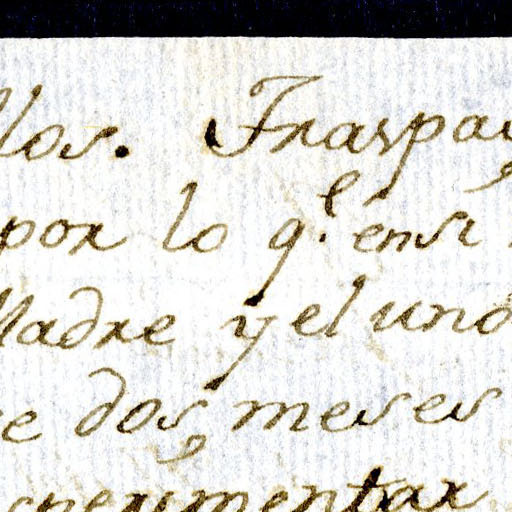 llos. Traspas
por lo q.e ensi
Madre y el uno
e dos meses
experimentar